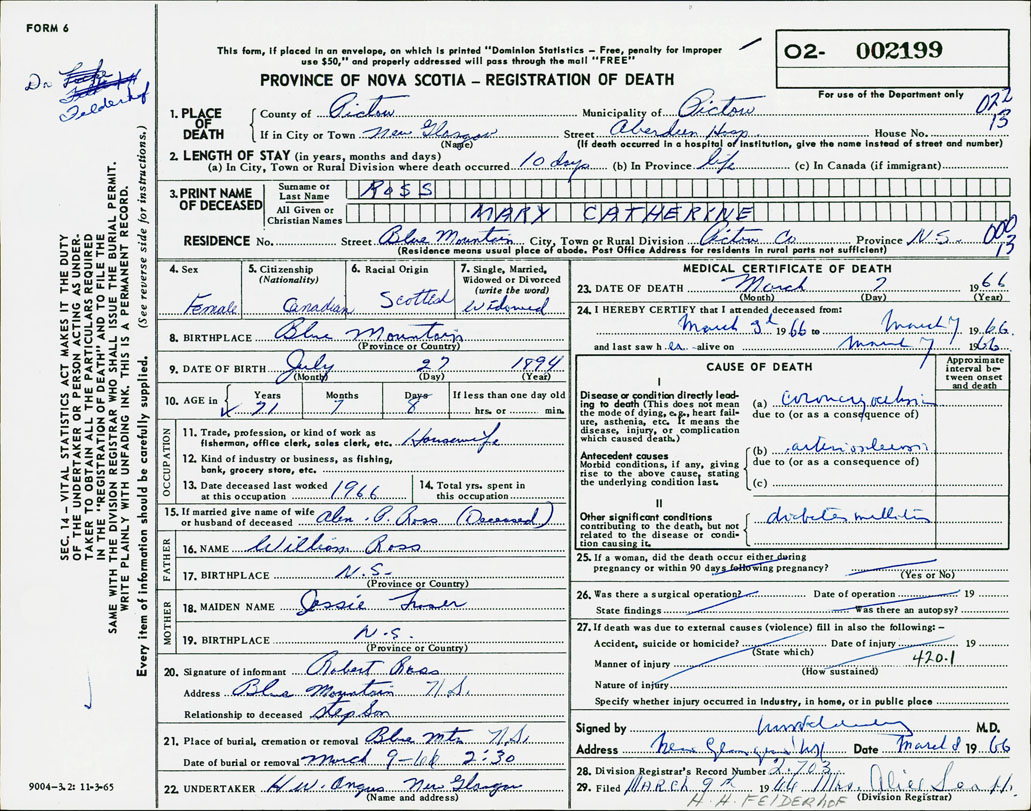 FORM 6
This form, if placed in an envelope, on which is printed "Dominion Statistics – Free, penalty for improper
use $50," and properly addressed will pass through the mail "FREE"
PROVINCE OF NOVA SCOTIA – REGISTRATION OF DEATH
O2- 002199
For use of the Department only
Dr Felderhof
022
13
1. PLACE OF DEATH County of Pictou Municipality of Pictou
If in City or Town New Glasgow Street Aberdeen Hosp. House No.
(Name) (If death occurred in a hospital or institution, give the name instead of street and number)
2. LENGTH OF STAY (in years, months and days)
(a) In City, Town or Rural Division where death occurred 10 days (b) In Province life (c) In Canada (if immigrant)
3. PRINT NAME OF DECEASED Surname or Last Name ROSS
All Given or Christian Names MARY CATHERINE
RESIDENCE No. Street Blue Mountain City, Town or Rural Division Pictou Co. Province N.S.
000
13
(Residence means usual place of abode. Post Office Address for residents in rural parts not sufficient)
4. Sex Female
5. Citizenship (Nationality) Canadian
6. Racial Origin Scottish
7. Single, Married, Widowed or Divorced (write the word) Widowed
8. BIRTHPLACE Blue Mountain
(Province or Country)
9. DATE OF BIRTH July 27 1894
(Month) (Day) (Year)
10. AGE in Years 71 Months 7 Days 8 If less than one day old hrs. or min.
OCCUPATION
11. Trade, profession, or kind of work as fisherman, office clerk, sales clerk, etc. Housewife
12. Kind of industry or business, as fishing, bank, grocery store, etc.
13. Date deceased last worked at this occupation 1966
14. Total yrs. spent in this occupation
15. If married give name of wife or husband of deceased Alex. P. Ross (Deceased)
FATHER
16. NAME William Ross
17. BIRTHPLACE N.S.
(Province or Country)
MOTHER
18. MAIDEN NAME Jessie Fraser
19. BIRTHPLACE N.S.
(Province or Country)
20. Signature of informant Robert Ross
Address Blue Mountain N.S.
Relationship to deceased Step Son
21. Place of burial, cremation or removal Blue Mtn N.S.
Date of burial or removal March 9-66 2:30
22. UNDERTAKER H.W. Angus New Glasgow
(Name and address)
MEDICAL CERTIFICATE OF DEATH
23. DATE OF DEATH March 7 1966
(Month) (Day) (Year)
24. I HEREBY CERTIFY that I attended deceased from:
March 3d 1966 to March 7 1966
and last saw her alive on March 7 1966
CAUSE OF DEATH
Approximate interval between onset and death
I
Disease or condition directly leading to death (This does not mean the mode of dying, e.g., heart failure, asthenia, etc. It means the disease, injury, or complication which caused death.)
(a) coronary occlusion
due to (or as a consequence of)
Antecedent causes
Morbid conditions, if any, giving rise to the above cause, stating the underlying condition last.
(b) arteriosclerosis
due to (or as a consequence of)
(c)
II
Other significant conditions contributing to the death, but not related to the disease or condition causing it.
diabetes mellitus
25. If a woman, did the death occur either during pregnancy or within 90 days following pregnancy?
(Yes or No)
26. Was there a surgical operation? Date of operation 19
State findings Was there an autopsy?
27. If death was due to external causes (violence) fill in also the following:–
Accident, suicide or homicide? Date of injury 19
(State which)
Manner of injury 420.1
(How sustained)
Nature of injury
Specify whether injury occurred in industry, in home, or in public place
Signed by M.D.
Address New Glasgow NS Date March 8 1966
28. Division Registrar's Record Number 2,703
29. Filed MARCH 9th 1966 Mrs.
(Division Registrar)
H. H. FELDERHOF
SEC. 14 – VITAL STATISTICS ACT MAKES IT THE DUTY
OF THE UNDERTAKER OR PERSON ACTING AS UNDER-
TAKER TO OBTAIN ALL THE PARTICULARS REQUIRED
IN THE "REGISTRATION OF DEATH" AND TO FILE THE
SAME WITH THE DIVISION REGISTRAR WHO SHALL ISSUE THE BURIAL PERMIT.
WRITE PLAINLY WITH UNFADING INK. THIS IS A PERMANENT RECORD.
Every item of information should be carefully supplied. (See reverse side for instructions.)
9004–3.2: 11-3-65